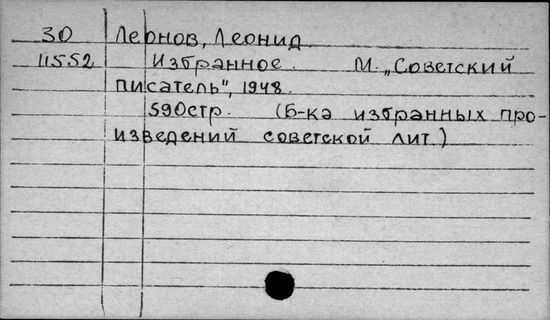 30 Леонов, Леонид.
11552 Избранное. М. „Советский
писатель", 1948.
590стр. (Б-ка избранных про-
изведений советской лит.)